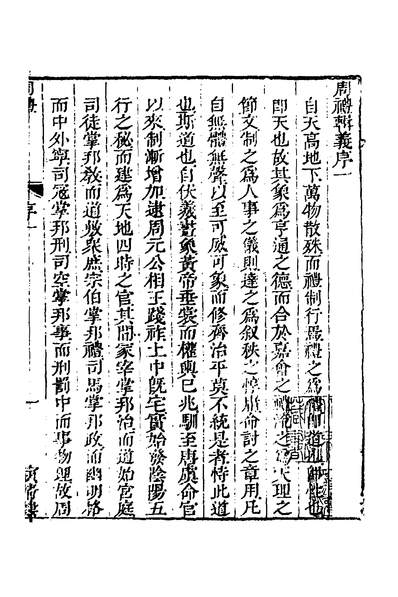 周禮輯義序一
自天高地下萬物散殊而禮制行焉禮之為禮即道也即性也
即天也故其象為亨通之德而合於嘉會之之為天理之
節文制之為人事之儀則達之為叙秩之惇庸命討之章用凡
自無體無聲以至可威可象而修齊治平莫不統是者恃此道
也斯道也自伏羲畫象黃帝垂裳而權輿已兆馴至唐虞命官
以來制漸增加逮周元公相王踐祚土中既宅實始發陰陽五
行之秘而建為天地四時之官其間冢宰掌邦治而道始宮庭
司徒掌邦教而道敷衆庶宗伯掌邦禮司馬掌邦政而幽明格
而中外寧司冦掌邦刑司空掌邦事而刑罰中而事物理故周
序一
一